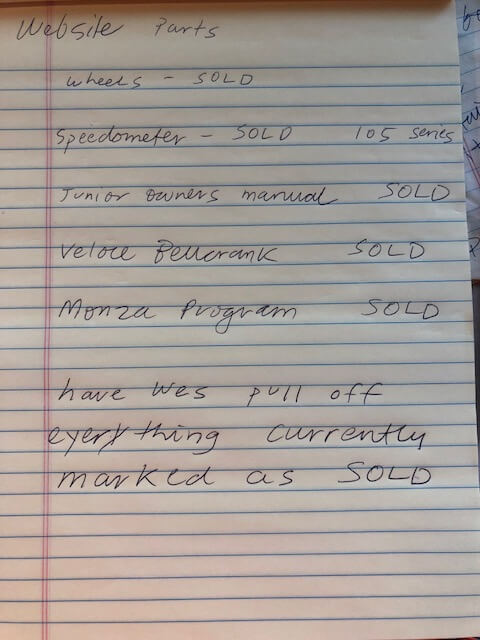 Website Parts
wheels - SOLD
Speedometer - SOLD 105 series
Junior owners manual SOLD
Veloce Bellcrank SOLD
Monza Program SOLD
have Wes pull off
everything currently
marked as SOLD